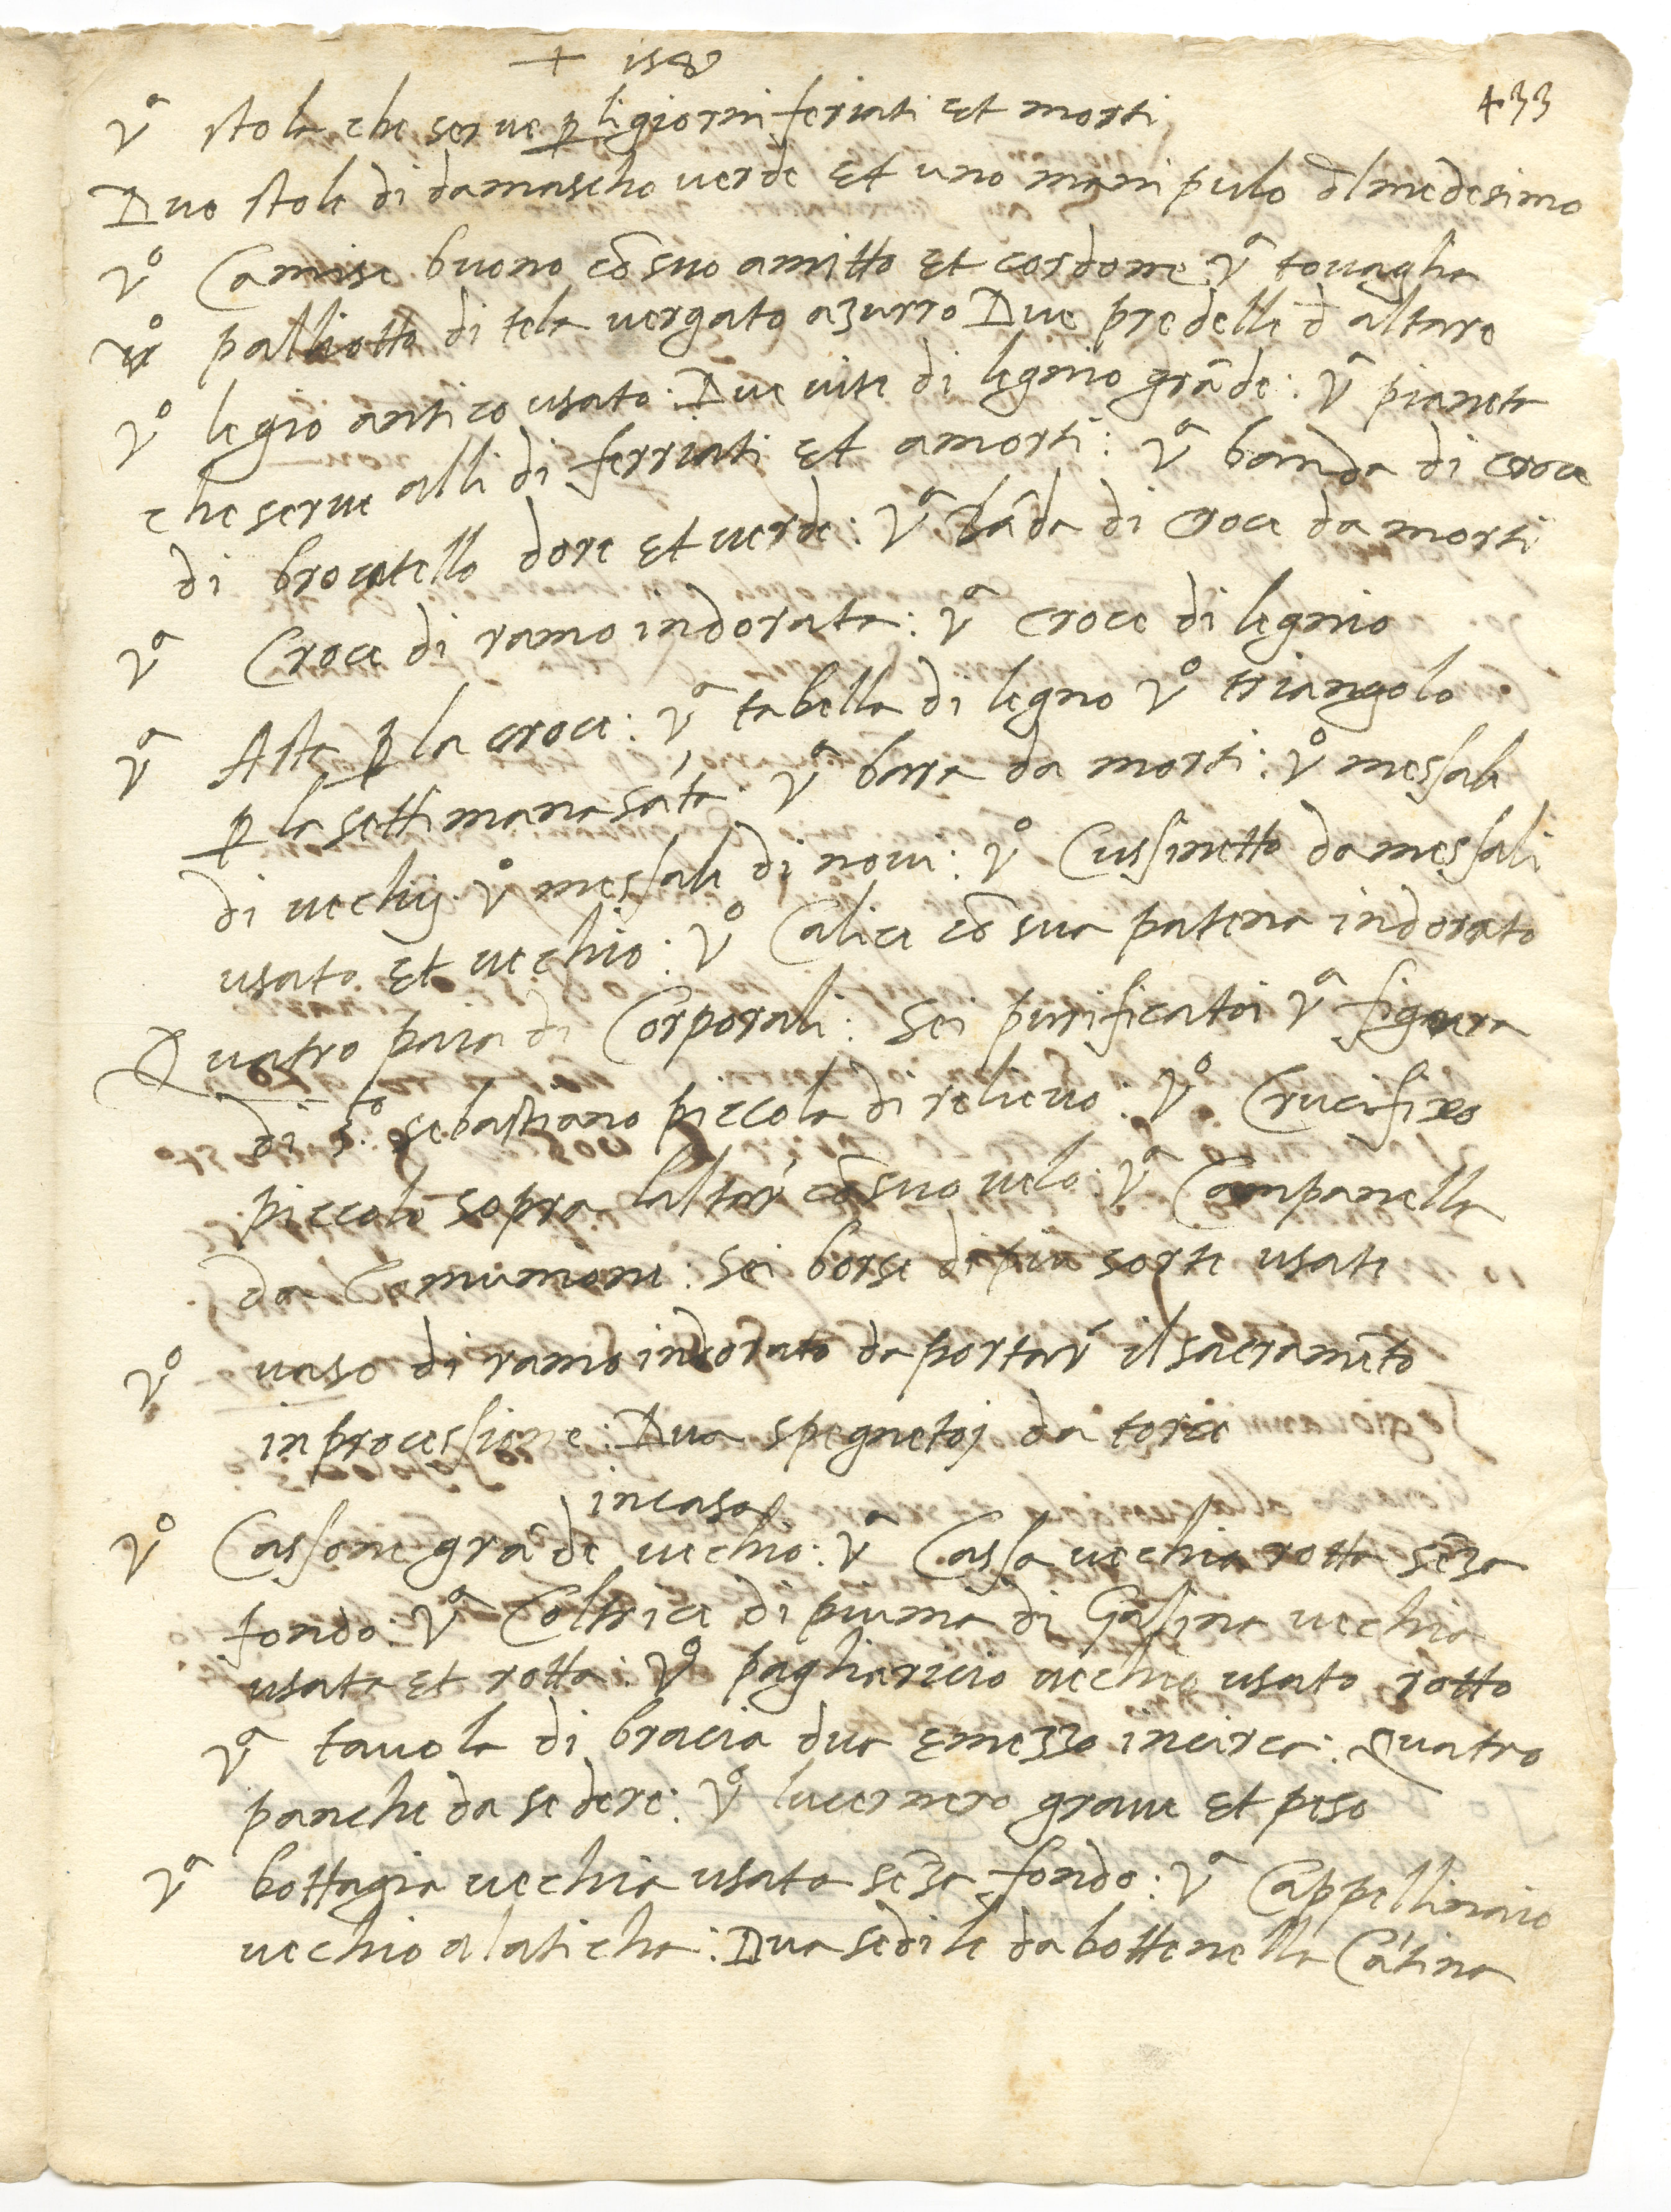 + 1587
433
vª stola che serve p̱ li giorni feriati et morti
Duo stole di damascho verde et uno manipulo dl medesimo
vº Camise buono cō suo amitto et cordone vª tovaglia
vº palliotto di tela vergato azurro Due predelle d altare
vº legio antico usato: Due vite di legnio grāde: vª pianeta
che serve alli di ferriati et a morti: vª banda di croce
di brocatello dore et verde: vª bāda di croce da morti
vª Croce di ramo indorata: vª croce di legnio
vª Asta p̱ la croce: vª tabella di legno vº triangolo
p̱ la settimana sāta vª barra da morti: vº messale
di vechij. vº messale di novi: vº Cussinetto da messali
usato et vechio: vº Calice cō sua patena indorato
Quatro para di Corporali: sei purificatoi vª figura
di sº. sebastiano piccola di relievo: vº Crucifixo
piccolo sopra laltar' cō suo velo: vª Campanella
da Comunione: sei borse di piu sorte usate
vº vaso di ramo indorato da portar' il sacramēto
in processione: Dua spegnetoj da torce
in casa
vº Cassone grāde vechio: vª Cassa vechia rotta sēza
fondo: vª Coltrice di piuma di Galina vechia
usata et rotta: vº pagliaricio vechio usato rotto
vª tavola di bracia dua e mezzo incirca: Quatro
panche da sedere: vº lucernero grave et peso
vª bottagia vechia usata sēza fondo: vª Cappellinaio
vechio alaticha: Dua sedile da botte nella Cātina